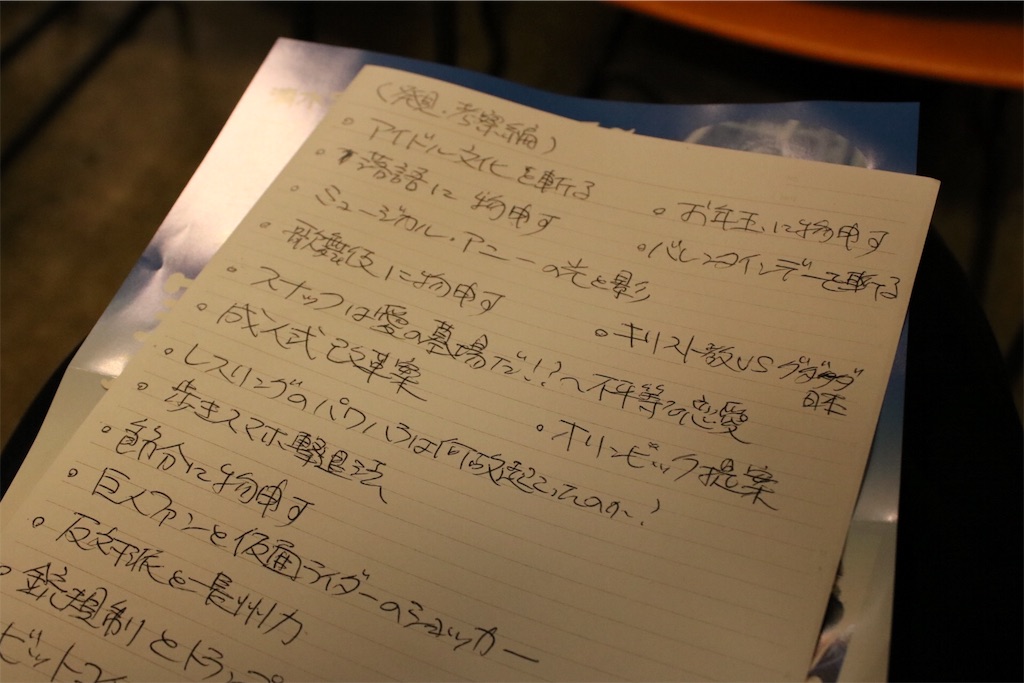 (発見・考察編)
。アイドル文化を斬る
。落語に物申す
。ミュージカル・アニーの光と影
。歌舞伎に物申す
。スナックは愛の墓場だ!?〜不平等な恋愛
。成人式改革案
。レスリングのパワハラは何故起こったのか?
。歩きスマホ撃退法
。節分に物申す
。巨人ファンと仮面ライダーのショッカー
。反対派と長州力
。銃規制とトランプ
ビットコイ
。お年玉に物申す
。バレンタインデーを斬る
。キリスト教VSグダグダ日本
。オリンピック提案